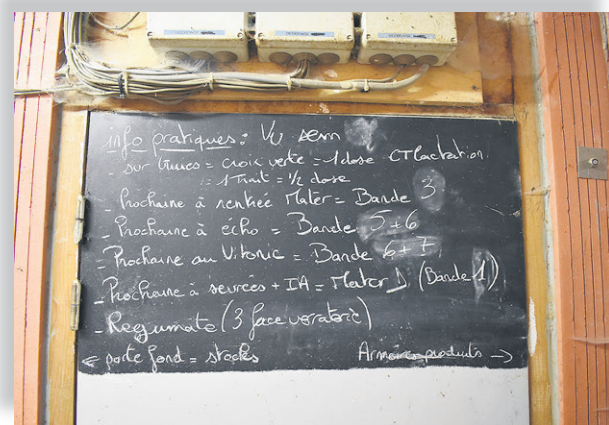 info pratiques : Vu sem
- sur truies = croix verte = 1 dose CTlactation
= 1 trait = 1/2 dose
- Prochaine à rentrée Mater = Bande 3
- Prochaine à écho = Bande 5+6
- Prochaine au Vitonic = Bande 6+7
- Prochaine à sevrées + IA = Mater (Bande 1)
- Regumate (3 face verraterie)
← porte fond = stocks
Armoires produits →